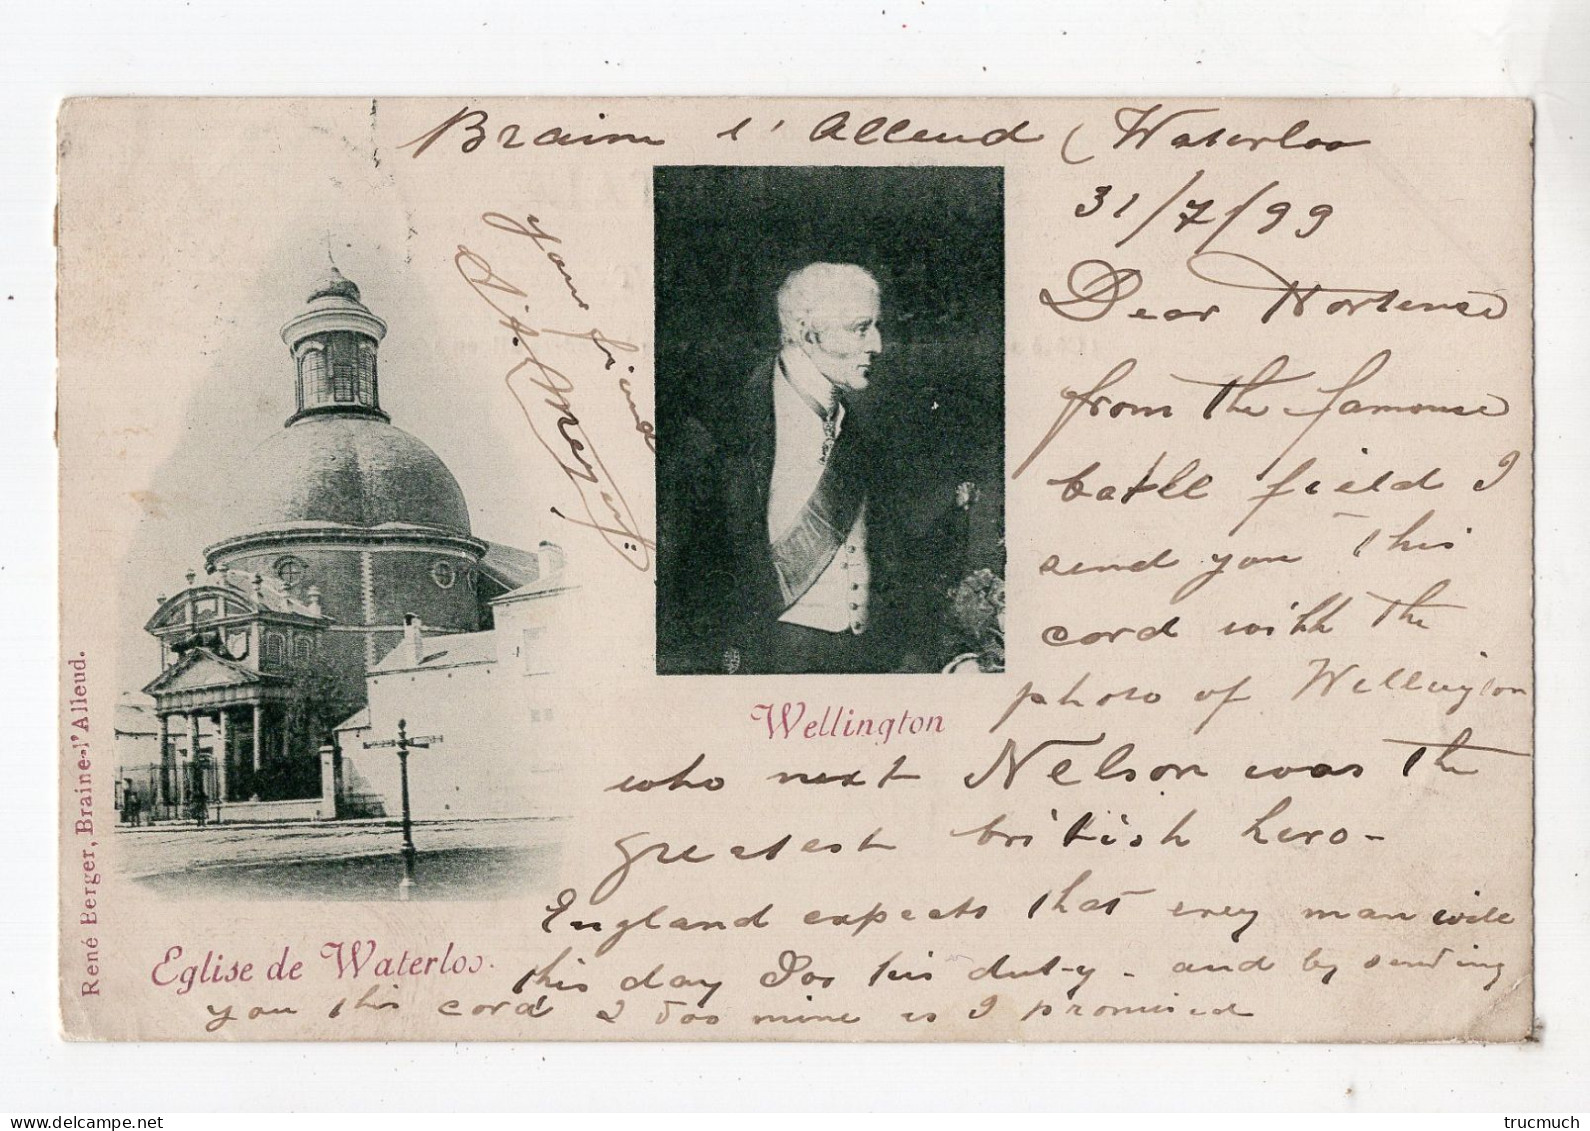 Braine l'Alleud (Waterloo
31/7/99
Dear Hortense
from the famouse
batell field I
send you this
card with the
photo of Wellington
who next Nelson was the
greatest british hero-
England expects that evey man wile
this day Doo his duty - and by sending
you this card I doo mine as I promised
your friend
Wellington
Eglise de Waterloo.
René Berger, Braine-l'Alleud.
delcampe.net
trucmuch